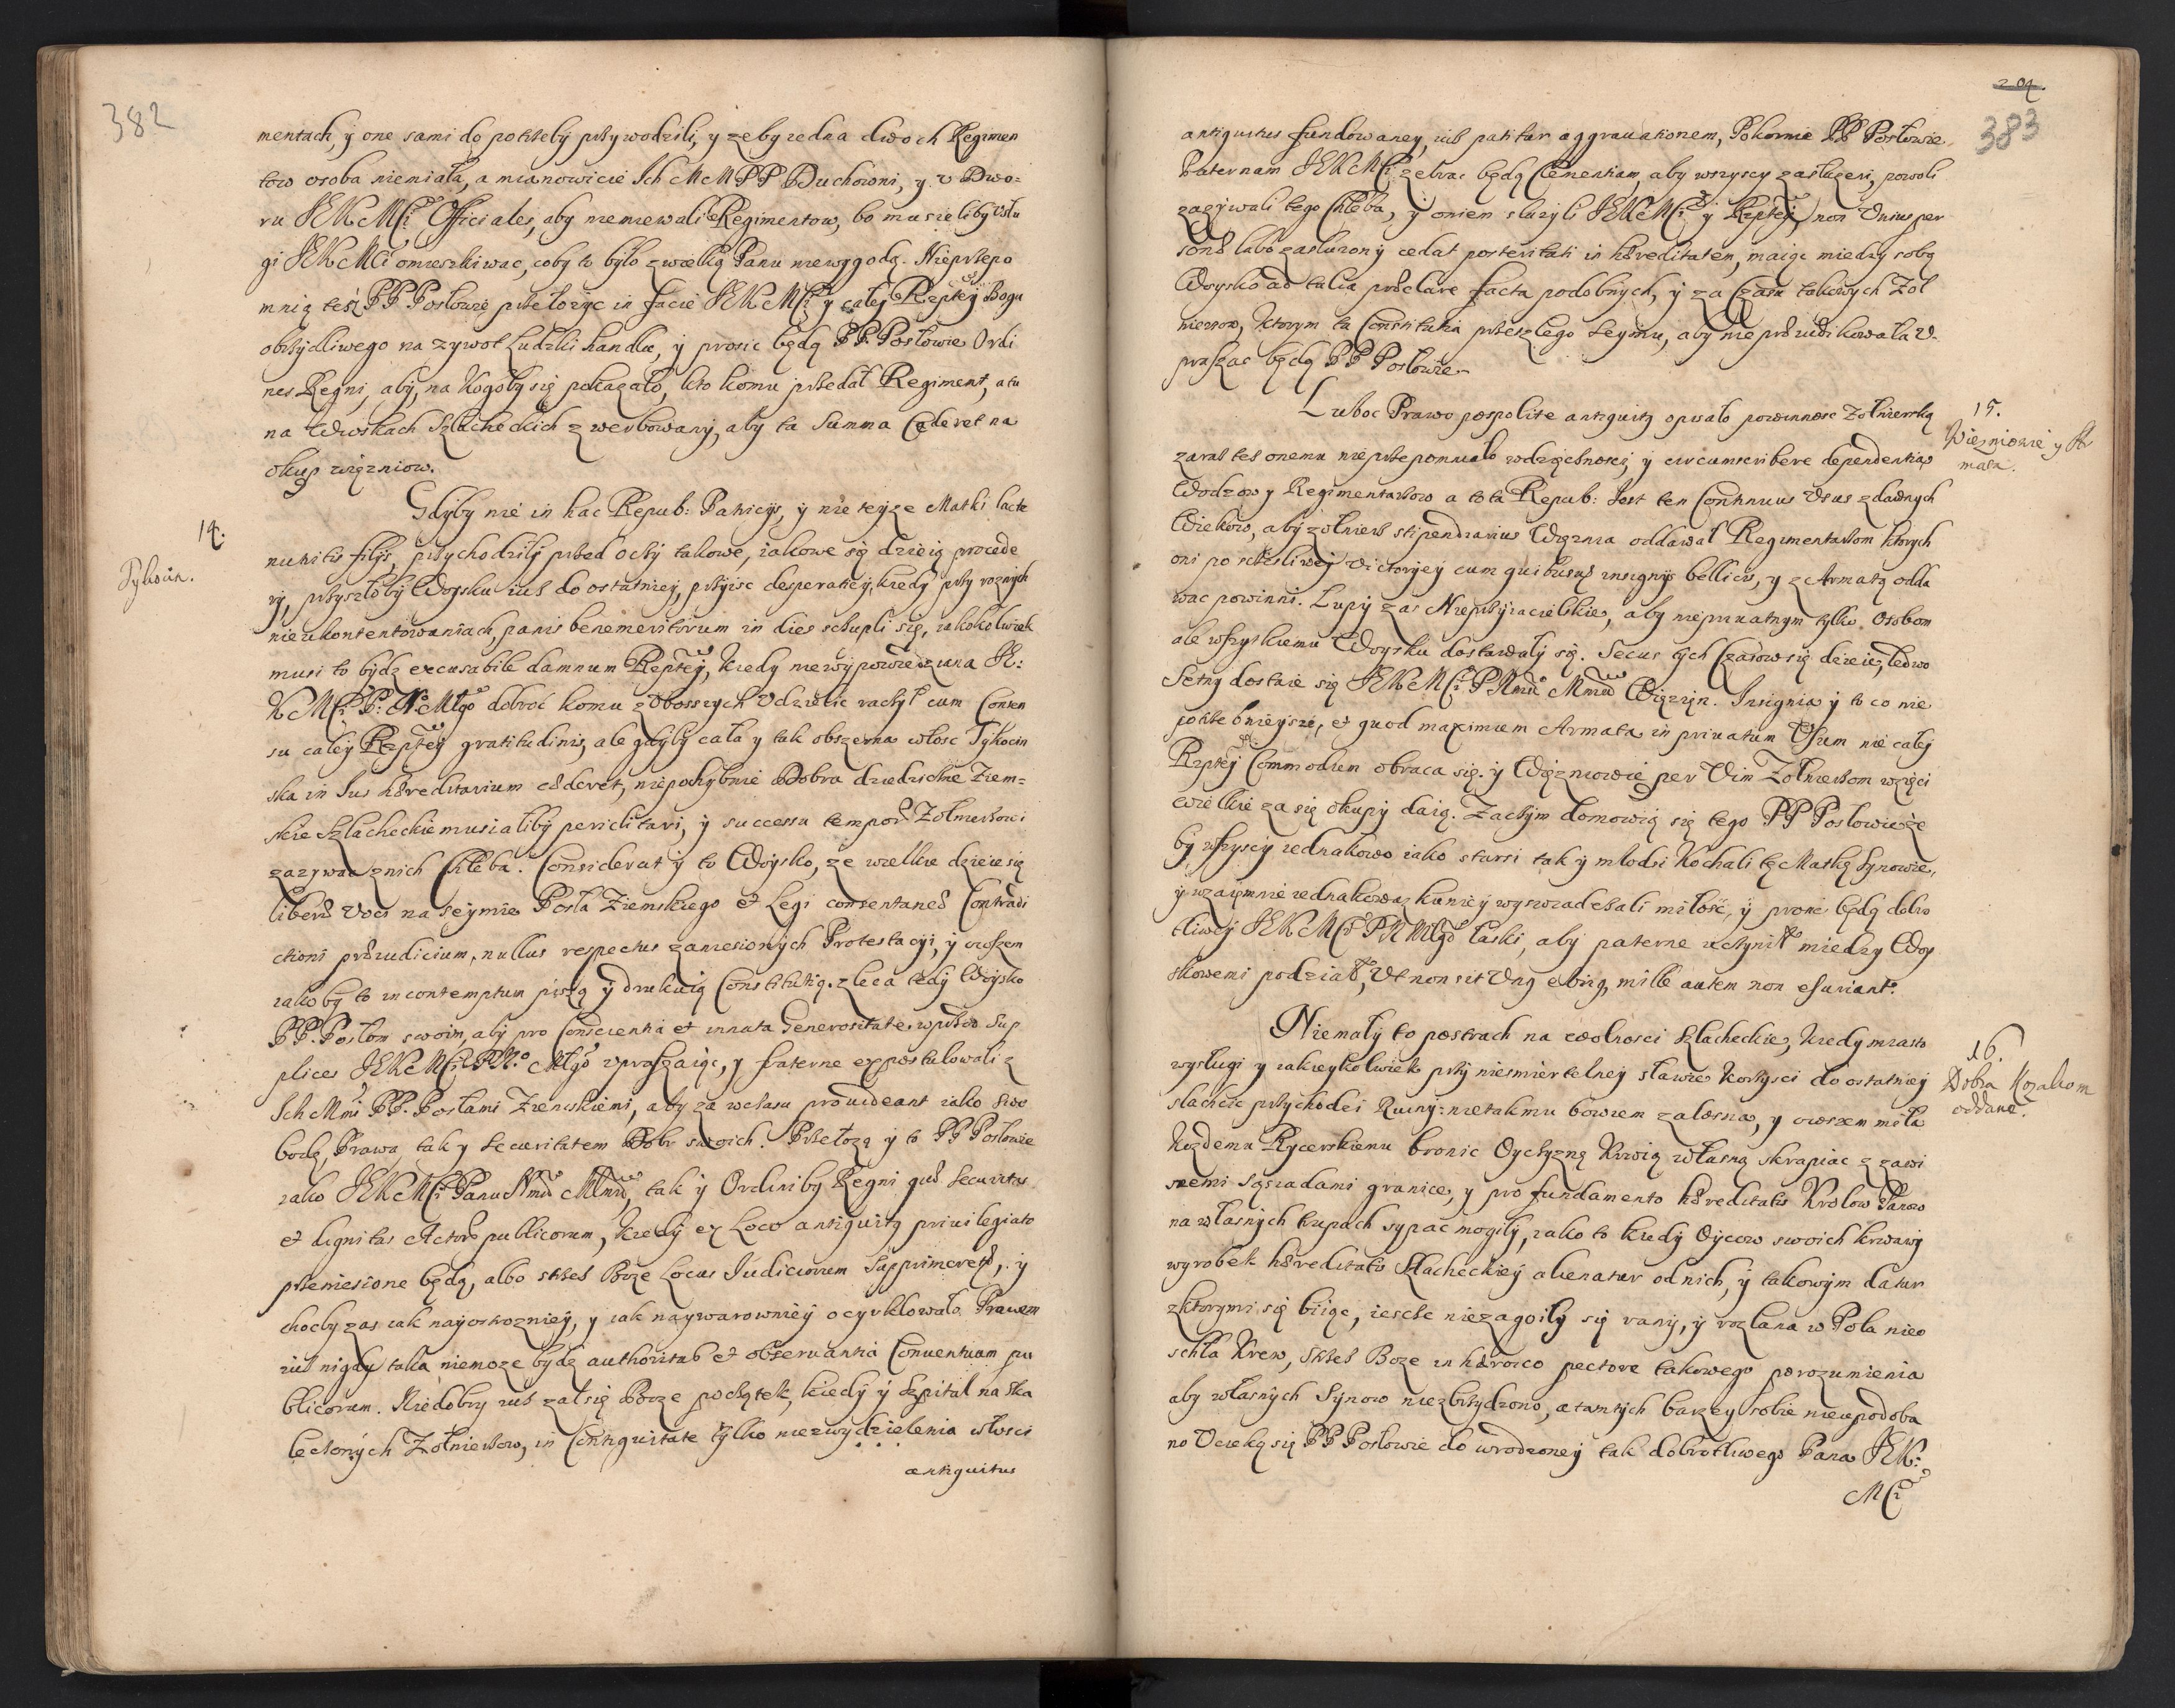 382
mentach, y one sami do potrzeby przywodzili, y zeby iedna dwoch Regimen
tow osoba niemiała, a mianowicie Ich McM PP Duchowni, y v Dwo=
ru JEKMCi Officiales, aby niemiewali Regimentow, bo musieliby Vsłu
gi JEKMCi omieszkiwac, coby to było z wielką Panu niewygodą. Nieprzepo
mnią tesz PP Posłowie przełozyc in facie JEKMCi y całey Rzptey Bogu
obrzydliwego na zywot Ludzki handlu, y prosic będą PP. Posłowie Ordi
nes Regni, aby, na Kogoby się pokazało, kto komu przedał Regiment, a tu
na Wioskach Szlacheckich zwerbowany, aby ta Summa Cederet na
okup więzniow.
14.
Tykocin.
Gdyby nie in hac Repub: Patricys, y nie teyze Matki lacte
nutritis filys, przychodziły przed oczy takowe, iakowe się dzieią procede
ry, przyszłoby Woysku iusz do ostatniey przyisc desperatiey, kiedy przy roznych
nieukontentowaniach, panis benemeritorum in dies schupli się, iakokolwiek
musi to bydz excusabile damnum Rzptey, kiedy niewypowiedziana JE:
KMCi P: N: Młgo dobroc komu z Vbosszych Vdzielic raczył cum Consen
su całey Rzptey gratitudinis, ale gdyby cała y tak obszerna włosc Tykocin
ska in Ius haereditarium cederet, niepochybnie Dobra dziedziczne Ziem=
skie Szlacheckie musiałiby periclitari, y successu temporis Zołnierzowi
zazywac znich Chleba. Considerat y to Woysko, ze wielkie dzieie się
liberae Voci na seymie Posła Ziemskiego et Legi consentaneae Contradi
ctioni praeiudicium, nullus respectus zaniesionych Protestacyi, y owszem
iakoby to in contemptum piszą y drukuią Constitutią. zleca tedy Woysko
PP. Posłom swoim, aby pro Conscientia et innata Generositate, wprzod Sup
plices JEKMCi P.N. Młgo vpraszaiąc, y fraterne expostulowali z
Ich Mmi PP. Posłami Ziemskiemi, aby za wczasu prouideant iako Swo
bodę, Prawa, tak y securitatem Dobr swoich. Przełozą y to PP Posłowie
iako JEKMCi Panu Nmu Młmu, tak y Ordinibg Regni quae securitas
et dignitas Actorum publicorum, kiedy ex Loco antiquitg priuilegiato
przeniesione będą, albo strzesz Boze Locus Iudiciorum Supprimeretur, y
chocby zas iak nayostrozniey, y iak naywarowniey ocyrklowało Prawem
iusz nigdy taka niemoze bydz authoritas et obseruantia Conuentuum pu
blicorum. Niedobry iusz zalsię Boze początek, kiedy y szpital na ska
leczonych Zołnierzow, in Contiguitate tylko niezwydzielenia włosci
antiquitus
204.
383
antiquitus fundowaney, iusz patitur aggrauationem, Pokornie PP Posłowie
Paternam JEKMCi zebrac będą Clementiam, aby wszyscy zasłuzeni, powoli
zazywali tego Chleba, y oniem słuzyli JEKMCi y Rzptey, non Vnius per
sonae labo zasłuzony cedat posteritati in haereditatem, maiąc miedzy sobą
Woysko ad talia praeclare facta podobnych, y za Czasu takowych Zoł
nierzow, ktorym ta Constitutia przeszłego Seymu, aby nie praeiudikowała v
praszac będą PP Posłowie.
15.
Więzniowie y Ar
mata.
Luboc Prawo pospolite antiquitg opisało powinnosc Zołnierską
zaraz tesz onemu nieprzepomniało wdzięcznosci, y circumscribere dependentias
Wodzow y Regimentarzow a tota Repub: Jest ten Continuus Vsus z dawnych
Wiekow, aby zołnierz stipendiarius Więznia oddawał Regimentarzom ktorych
oni po szczesliwey victoryey cum quibusuis insignys bellicis, y z Armatą odda
wac powinni. Lupy zas Nieprzyiacielskie, aby nie priuatnym tylko Osobom
ale wszystkiemu Woysku dostawały się. Secus tych Czasow się dzieie, ledwo
Setny dostaie się JEKMCi P Nmu Mmu Więzięn. Insignia y to co nie
potrzebnieysze, et quod maximum Armata in priuatum Vsum nie całey
Rzptey Commodum obraca się. y Więzniowie per Vim Zołnierzom wzięci
wielkie za się okupy daią. Zaczym domowią się tego PP Posłowie, ze
by wszyscy iednakowo iako starsi tak y młodsi Kochali tę Matkę Synowie,
y wzaiemnie iednakową kuniey wyswiadczali miłosc, y prosic będą dobro
tliwey JEKMCi P N Młgo łaski, aby paterne uczynił miedzy Woy
skowemi podział, Vt non sit Vng ebrig, mille autem non esuriant.
16.
Dobra Kozakom
oddane.
Niemały to postrach na wolnosci Szlacheckie, kiedy miasto
wysługi y iakieykolwiek przy niesmiertelney sławie Korzysci do ostatniey
slachcic przychodzi Ruiny: nie takmu bowiem załosna, y owszem miła
Kozdemu Rycerskiemu bronic Oyczyznę Krwią własną skrapiac z zawi
snemi sąsiadami granice, y pro fundamento haereditatis Krolow Panow
na własnych trupach sypac mogiły, iako to kiedy Oycow swoich krwawy
wyrobek haereditatis Szlacheckiey alienatur od nich, y takowym datur
z ktorymi się biiąc, iescze niezagoiły się rany, y rozlana w Pola nieo
schła Krew, strzesz Boze in haeroico pectore takowego porozumienia
aby własnych Synow niezbrzydzono, a tamtych barzey sobie nieupodoba
no Vcieką się PP Posłowie do wrodzoney tak dobrotliwego Pana JEK:
MCi